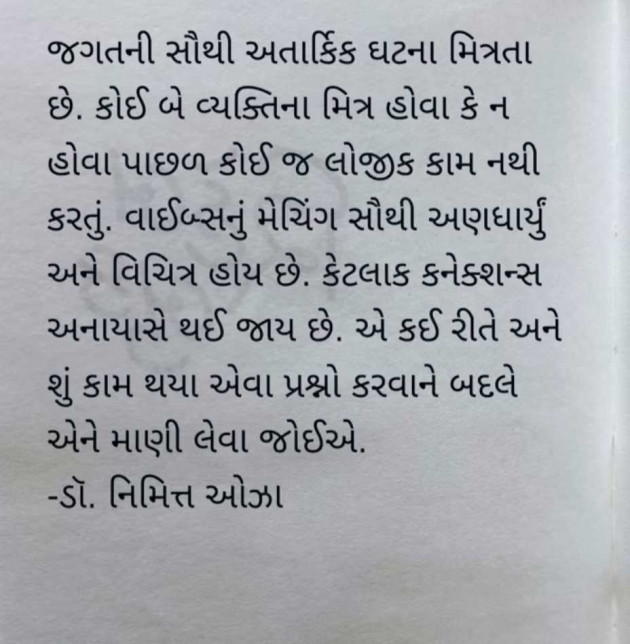 જગતની સૌથી અતાર્કિક ઘટના મિત્રતા
છે. કોઈ બે વ્યક્તિના મિત્ર હોવા કે ન
હોવા પાછળ કોઈ જ લોજીક કામ નથી
કરતું. વાઈબ્સનું મેચિંગ સૌથી અણધાર્યું
અને વિચિત્ર હોય છે. કેટલાક કનેક્શન્સ
અનાયાસે થઈ જાય છે. એ કઈ રીતે અને
શું કામ થયા એવા પ્રશ્નો કરવાને બદલે
એને માણી લેવા જોઈએ.
-ડૉ. નિમિત્ત ઓઝા